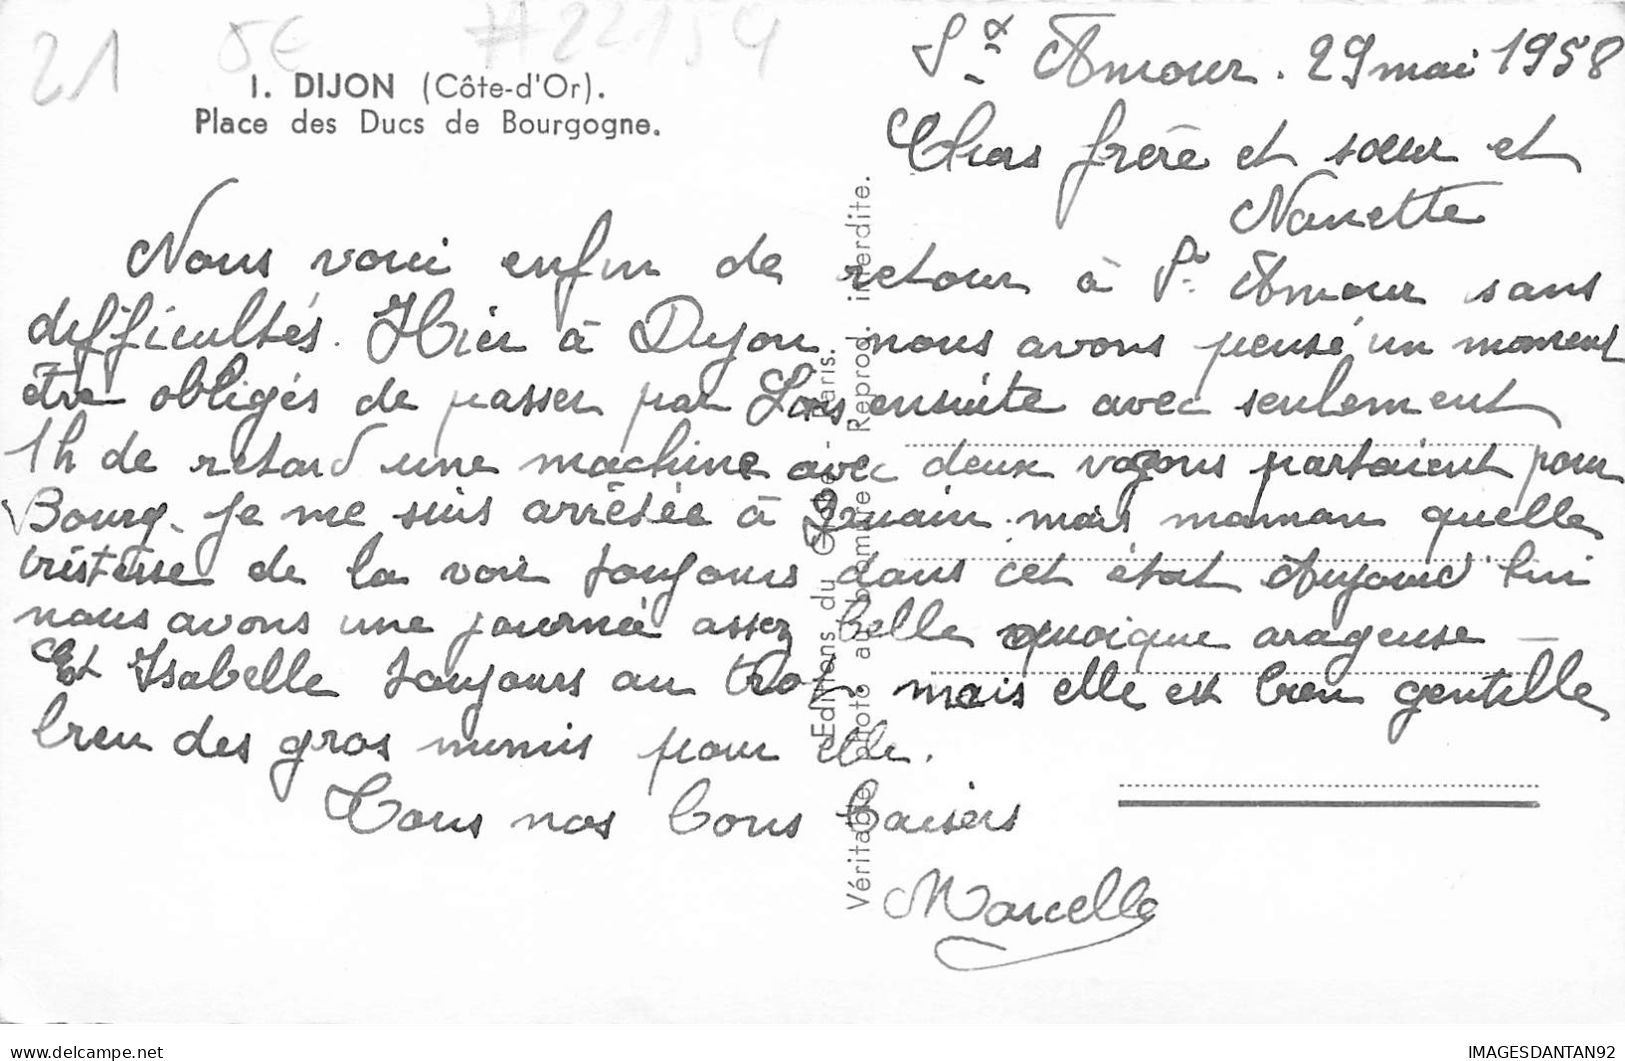 21 5€ #22154
1. DIJON (Côte-d'Or).
Place des Ducs de Bourgogne.
St Amour. 29 mai 1958
Chers frère et sœur et
Nanette
Nous voici enfin de retour à St Amour sans
difficultés. Hier à Dijon nous avons pensé un moment
être obligés de passer par ensuite avec seulement
1h de retard une machine avec deux vagons partaient pour
Bourg. Je me suis arrêtée à mais maman quelle
tristesse de la voir toujours dans cet état Aujourd'hui
nous avons une journée assez belle quoique orageuse —
Et Isabelle toujours au mais elle est bien gentille
bien des gros mimis pour elle.
Tous nos bons baisers
Marcelle
Editions du Globe - Paris.
Véritable photo au bromure Reprod. interdite.
delcampe.net
IMAGESDANTAN92